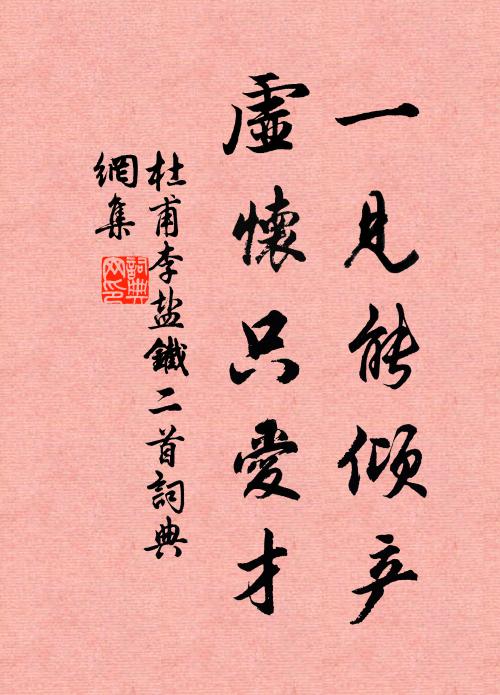 一見能傾产
虛懷只愛才
杜甫李盐鐵二首詞典
網集
詞典
网印